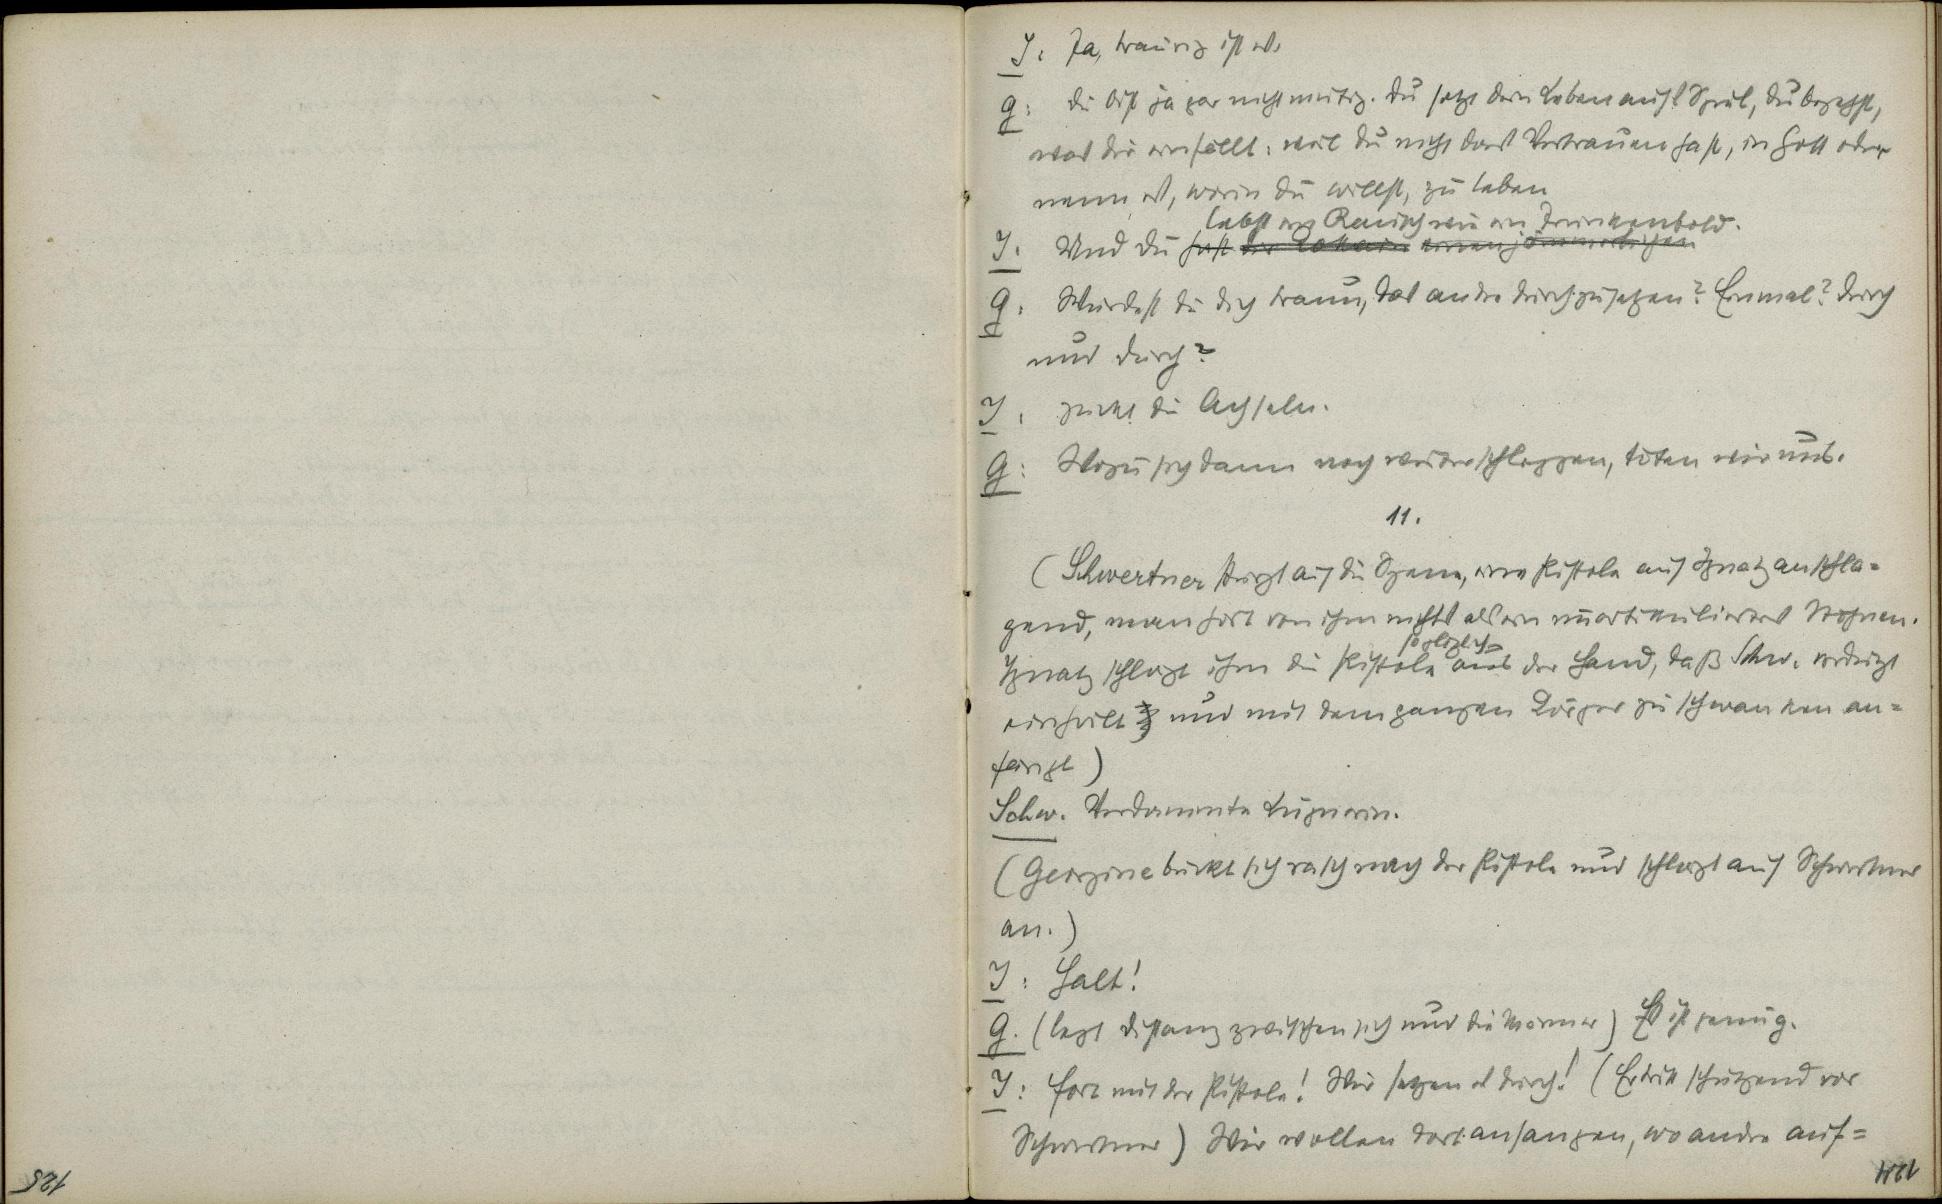 I: Ja, traurig ist es.
G: Du bist ja gar nicht mutig. Du setzt dein Leben aufs Spiel, du begehst,
was dir einfällt: weil du nicht das Vertrauen hast, in Gott oder
nenn es, worin du willst, zu leben
lebst im Rausch wie ein Trunkenbold.
I. Und du hast die Kokain einen jämmerlichen
G: Würdest du dich traun, das andre durchzusetzen? Einmal? Durch
und durch?
I: zuckt die Achseln.
G: Wozu sich dann noch weiterschleppen, töten wir uns.
11.
(Schwertner stürzt auf die Szene, eine Pistole auf Ignaz anschla-
gend, man hört von ihm nichts als ein unartikuliertes Stöhnen.
sogleich
Ignaz schlägt ihm die Pistole aus der Hand, daß Schw. verdutzt
einhält und mit dem ganzen Körper zu schwanken an-
fängt)
Schw. Verdammte Lügnerin.
(Georgine bückt sich rasch nach der Pistole und schlägt auf Schwertner
an.)
I: Halt!
G. (legt Distanz zwischen sich und die Männer) Es ist genug.
I: Fort mit der Pistole! Wir setzen es durch! (Er tritt schützend vor
Schwertner) Wir wollen dort anfangen, wo andre auf-
125
124